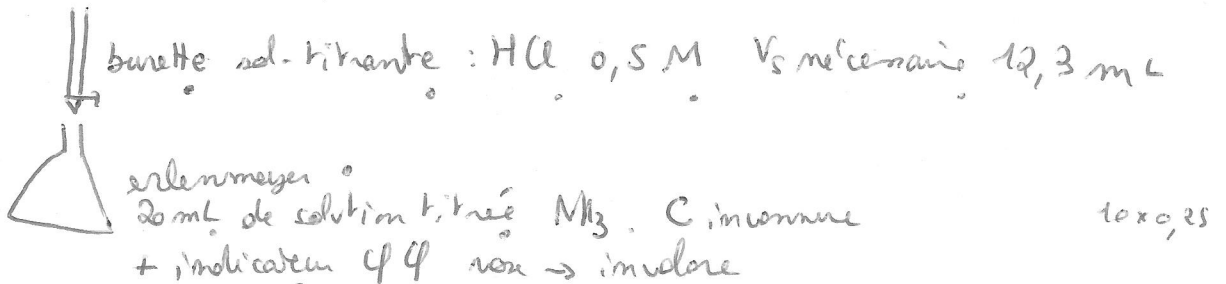 burette sol. titrante : HCl 0,5 M Vs nécessaire 12,3 mL
erlenmeyer :
20 mL de solution titrée NH3. C inconnue 10 x 0,25
+ indicateur φφ rose → incolore